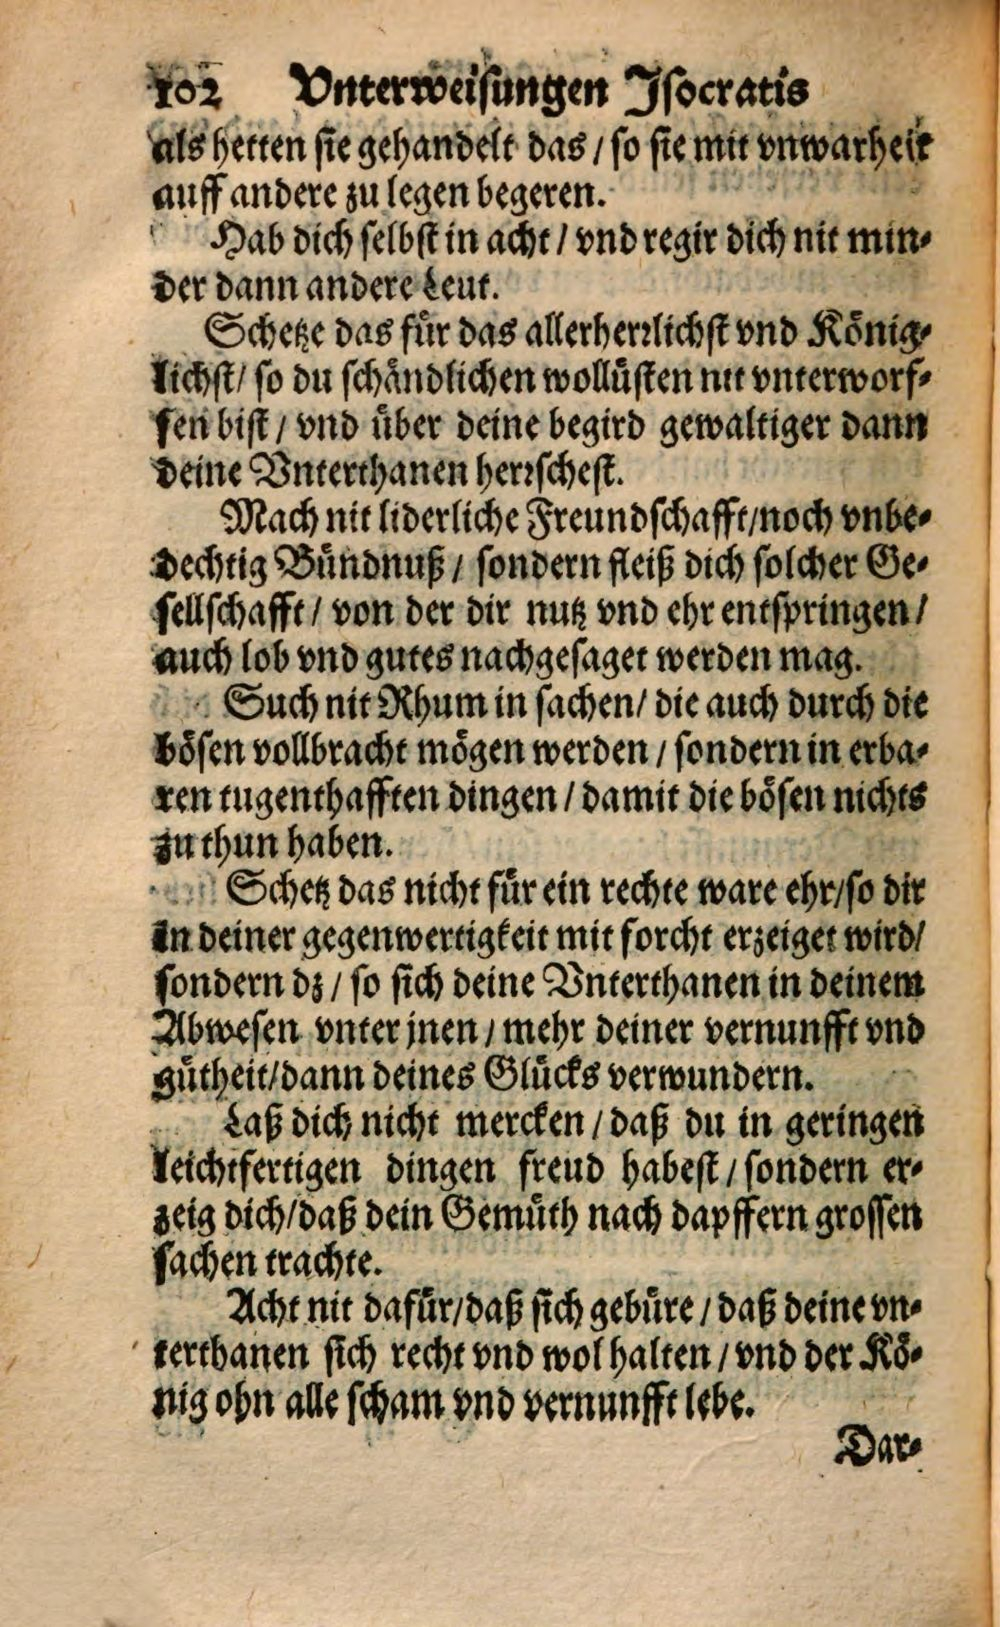 102 Vnterweisungen Jsocratis
als hetten sie gehandelt das / so sie mit vnwarheit
auff andere zu legen begeren.
Hab dich selbst in acht / vnd regir dich nit min-
der dann andere Leut.
Schetze das für das allerherrlichst vnd König-
lichst / so du schändlichen wollüsten nit vnterworf-
fen bist / vnd über deine begird gewaltiger dann
deine Vnterthanen herrschest.
Mach nit liderliche Freundschafft / noch vnbe-
dechtig Bündnuß / sondern fleiß dich solcher Ge-
sellschafft / von der dir nutz vnd ehr entspringen /
auch lob vnd gutes nachgesaget werden mag.
Such nit Rhum in sachen / die auch durch die
bösen vollbracht mögen werden / sondern in erba-
ren tugenthafften dingen / damit die bösen nichts
zu thun haben.
Schetz das nicht für ein rechte ware ehr / so dir
in deiner gegenwertigkeit mit forcht erzeiget wird /
sondern dz / so sich deine Vnterthanen in deinem
Abwesen vnter jnen / mehr deiner vernunfft vnd
gütheit / dann deines Glücks verwundern.
Laß dich nicht mercken / daß du in geringen
leichtfertigen dingen freud habest / sondern er-
zeig dich / daß dein Gemüth nach dapffern grossen
sachen trachte.
Acht nit dafür / daß sich gebüre / daß deine vn-
terthanen sich recht vnd wol halten / vnd der Kö-
nig ohn alle scham vnd vernunfft lebe.
Dar-